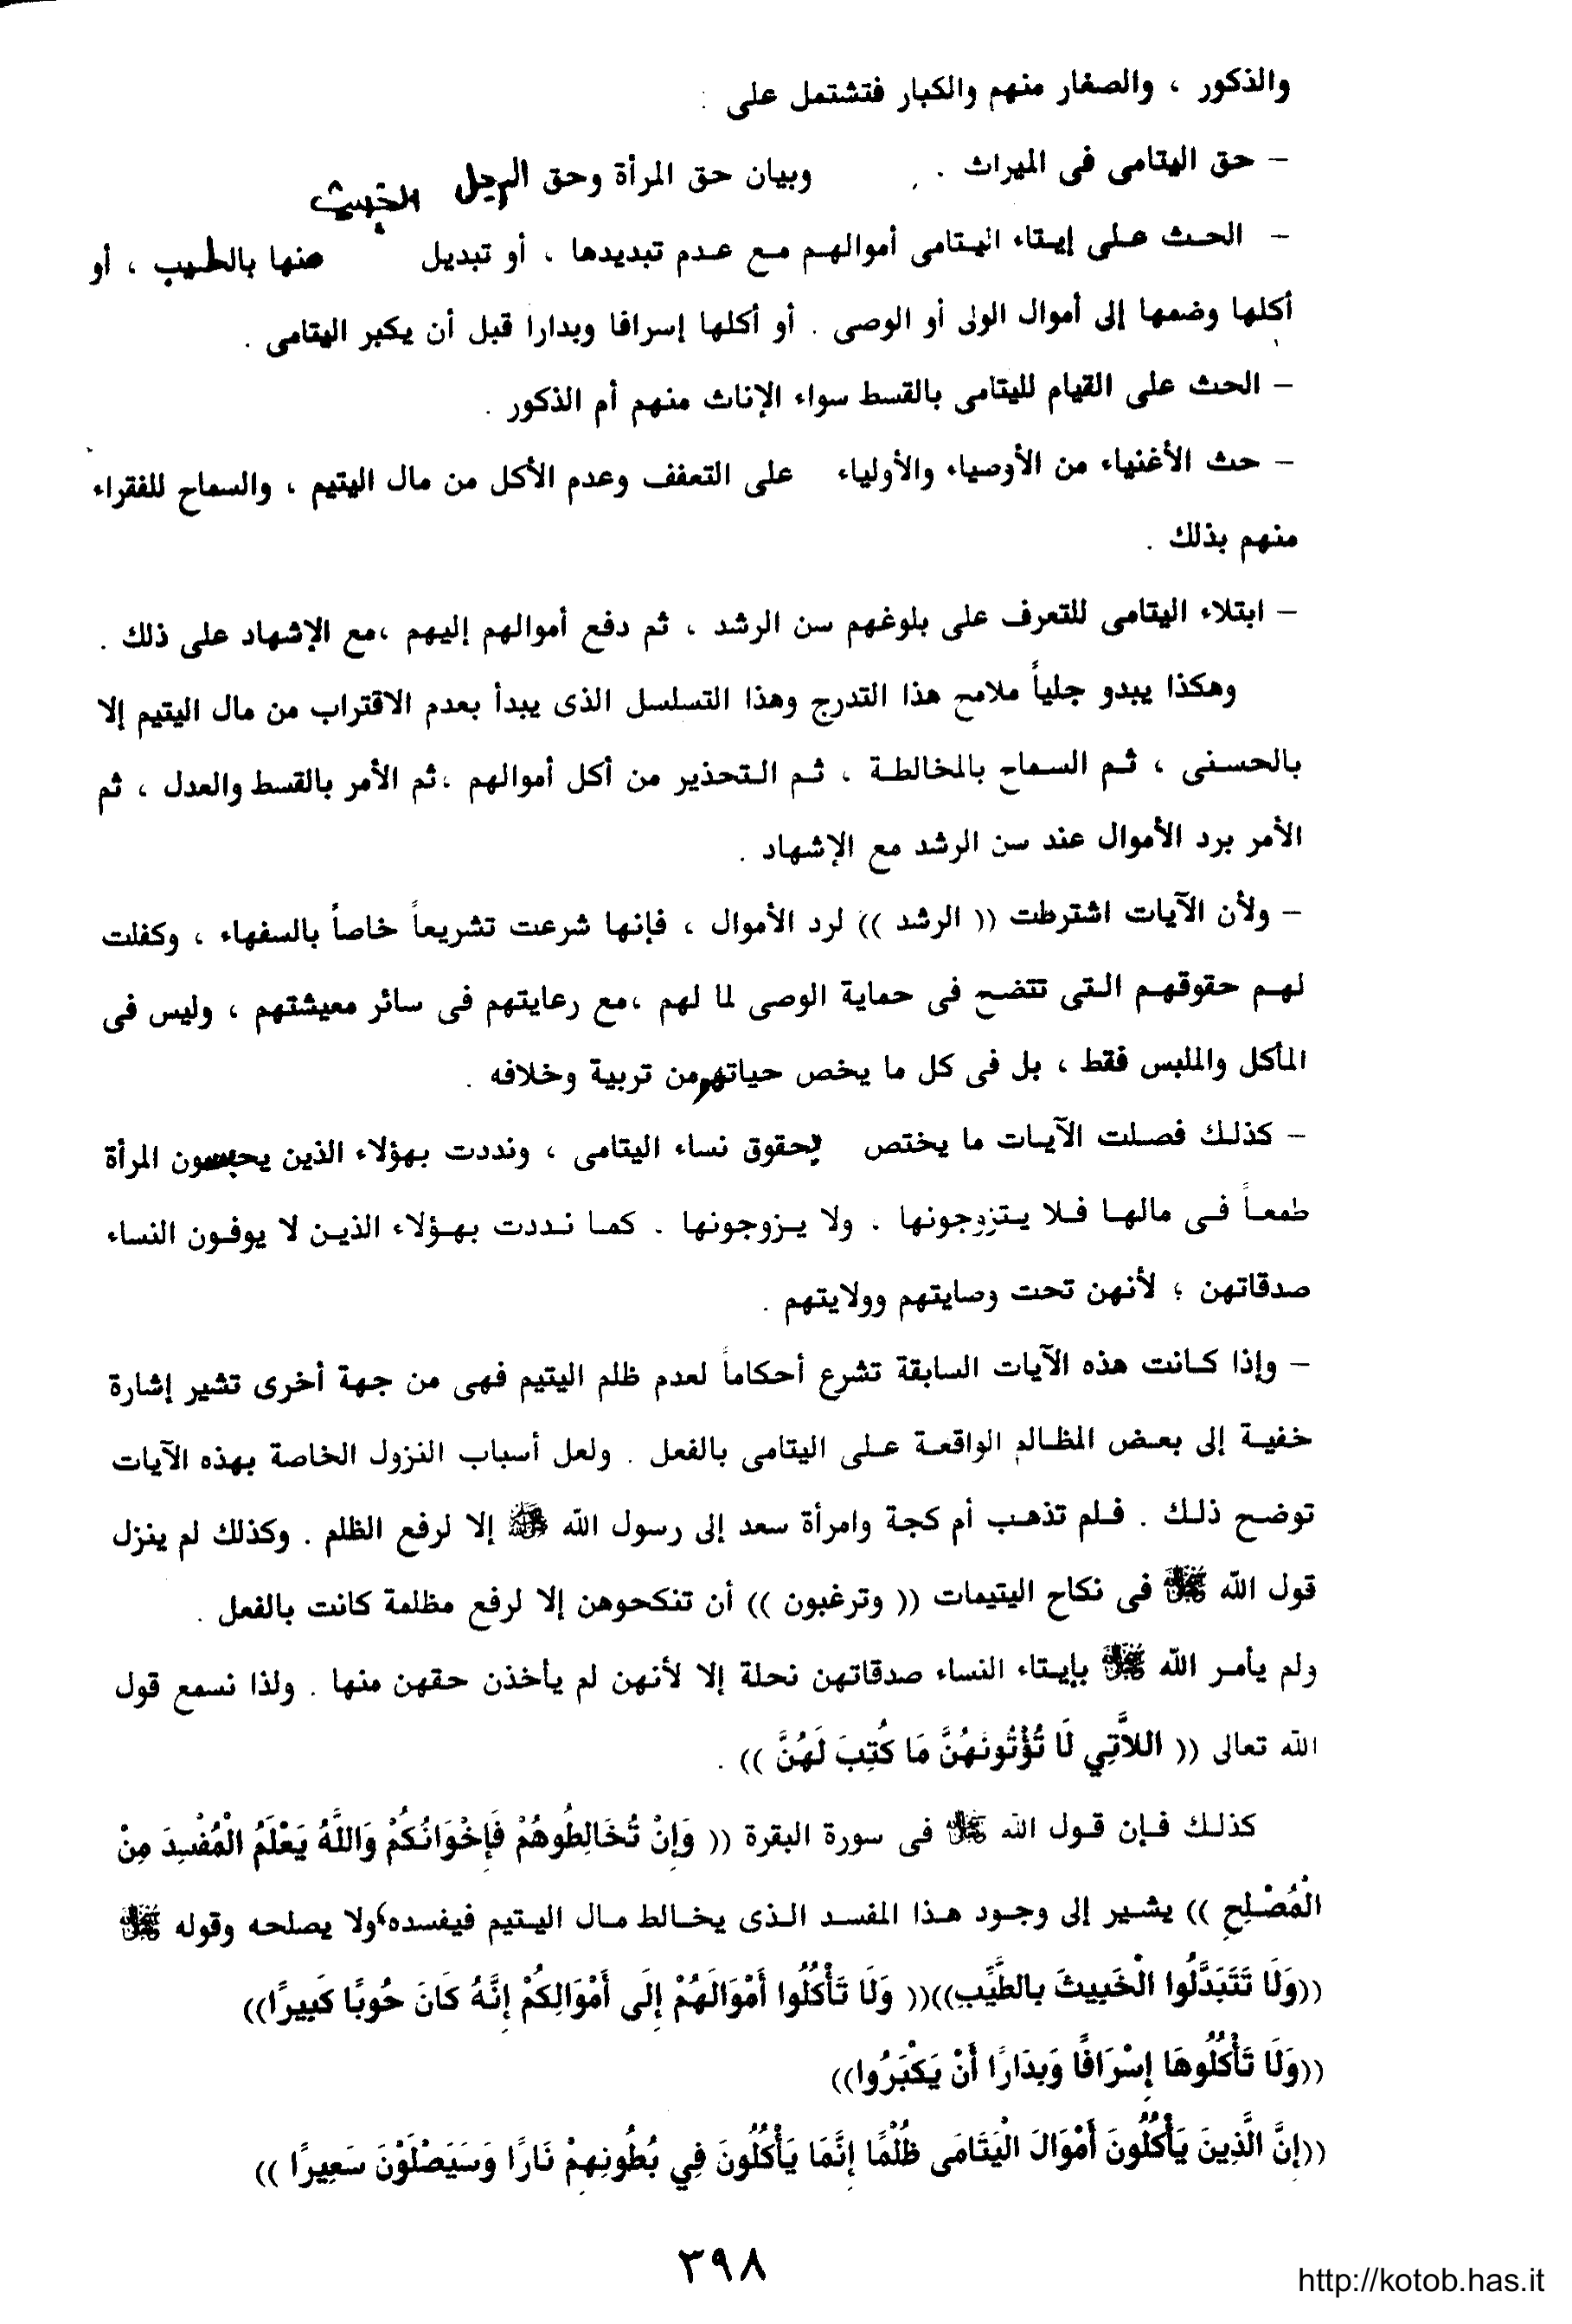 والذكور ، والصغار منهم والكبار فتشتمل على :
– حق اليتامى فى الميراث . وبيان حق المرأة وحق الرجل
– الحث على إيتاء اليتامى أموالهم مع عدم تبديدها ، أو تبديل الخبيث منها بالطيب ، أو
أكلها وضمها إلى أموال الولى أو الوصى . أو أكلها إسرافا وبدارا قبل أن يكبر اليتامى .
– الحث على القيام لليتامى بالقسط سواء الإناث منهم أم الذكور .
– حث الأغنياء من الأوصياء والأولياء على التعفف وعدم الأكل من مال اليتيم ، والسماح للفقراء
منهم بذلك .
– ابتلاء اليتامى للتعرف على بلوغهم سن الرشد ، ثم دفع أموالهم إليهم ،مع الإشهاد على ذلك .
وهكذا يبدو جلياً ملامح هذا التدرج وهذا التسلسل الذى يبدأ بعدم الاقتراب من مال اليتيم إلا
بالحسنى ، ثم السماح بالمخالطة ، ثم التحذير من أكل أموالهم ،ثم الأمر بالقسط والعدل ، ثم
الأمر برد الأموال عند سن الرشد مع الإشهاد .
– ولأن الآيات اشترطت (( الرشد )) لرد الأموال ، فإنها شرعت تشريعاً خاصاً بالسفهاء ، وكفلت
لهم حقوقهم التى تتضح فى حماية الوصى لما لهم ،مع رعايتهم فى سائر معيشتهم ، وليس فى
المأكل والملبس فقط ، بل فى كل ما يخص حياتهم من تربية وخلافه .
– كذلك فصلت الآيات ما يختص بحقوق نساء اليتامى ، ونددت بهؤلاء الذين يحبسون المرأة
طمعاً فى مالها فلا يتزوجونها . ولا يزوجونها . كما نددت بهؤلاء الذين لا يوفون النساء
صدقاتهن ؛ لأنهن تحت وصايتهم وولايتهم .
– وإذا كانت هذه الآيات السابقة تشرع أحكاماً لعدم ظلم اليتيم فهى من جهة أخرى تشير إشارة
خفية إلى بعض المظالم الواقعة على اليتامى بالفعل . ولعل أسباب النزول الخاصة بهذه الآيات
توضح ذلك . فلم تذهب أم كجة وامرأة سعد إلى رسول الله ﷺ إلا لرفع الظلم . وكذلك لم ينزل
قول الله ﷻ فى نكاح اليتيمات (( وترغبون )) أن تنكحوهن إلا لرفع مظلمة كانت بالفعل .
ولم يأمر الله ﷻ بإيتاء النساء صدقاتهن نحلة إلا لأنهن لم يأخذن حقهن منها . ولذا نسمع قول
الله تعالى (( اللاَّتِي لَا تُؤْتُونَهُنَّ مَا كُتِبَ لَهُنَّ )) .
كذلك فإن قول الله ﷻ فى سورة البقرة (( وَإِنْ تُخَالِطُوهُمْ فَإِخْوَانُكُمْ وَاللَّهُ يَعْلَمُ الْمُفْسِدَ مِنْ
الْمُصْلِحِ )) يشير إلى وجود هذا المفسد الذى يخالط مال اليتيم فيفسده،ولا يصلحه وقوله ﷻ
((وَلَا تَتَبَدَّلُوا الْخَبِيثَ بِالطَّيِّبِ))(( وَلَا تَأْكُلُوا أَمْوَالَهُمْ إِلَى أَمْوَالِكُمْ إِنَّهُ كَانَ حُوبًا كَبِيرًا))
((وَلَا تَأْكُلُوهَا إِسْرَافًا وَبِدَارًا أَنْ يَكْبَرُوا))
((إِنَّ الَّذِينَ يَأْكُلُونَ أَمْوَالَ الْيَتَامَى ظُلْمًا إِنَّمَا يَأْكُلُونَ فِي بُطُونِهِمْ نَارًا وَسَيَصْلَوْنَ سَعِيرًا ))
٣٩٨
http://kotob.has.it